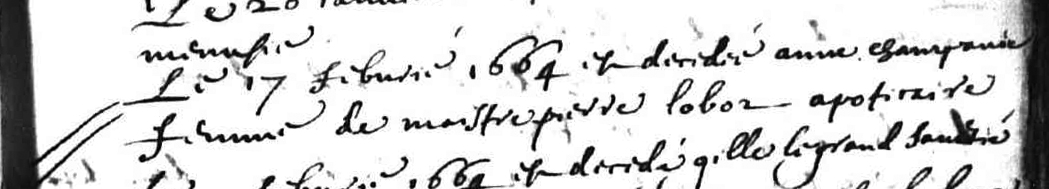 Le 20
menusie
Le 17 febvrié 1664 est decedeé anne champanie
femme de maistre pierre lobor apoticaire
1664 est decedé gille legrand